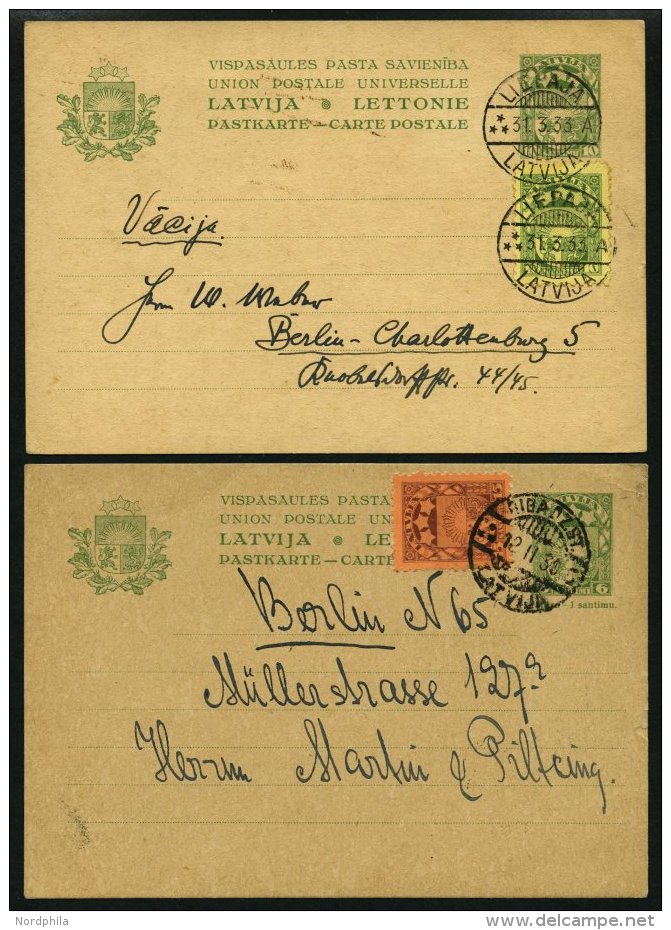 VISPASAULES PASTA SAVIENĪBA
UNION POSTALE UNIVERSELLE
LATVIJA LETTONIE
PASTKARTE — CARTE POSTALE
LATVIJA
10
LIEPAJA
31.3.33 A
LATVIJA
LIEPAJA
31.3.33 A
LATVIJA
10
Vācija.
Herrn W. Weber
Berlin - Charlottenburg 5
Knobelsdorffstr. 44/45.
VISPASAULES PASTA
UNION POSTALE UN
LATVIJA LE
PASTKARTE — CARTE
LATVIJA
6
1 santimu.
Berlin N 65
Müllerstrasse 127
Herrn Martin
Nordphila
delcampe.net